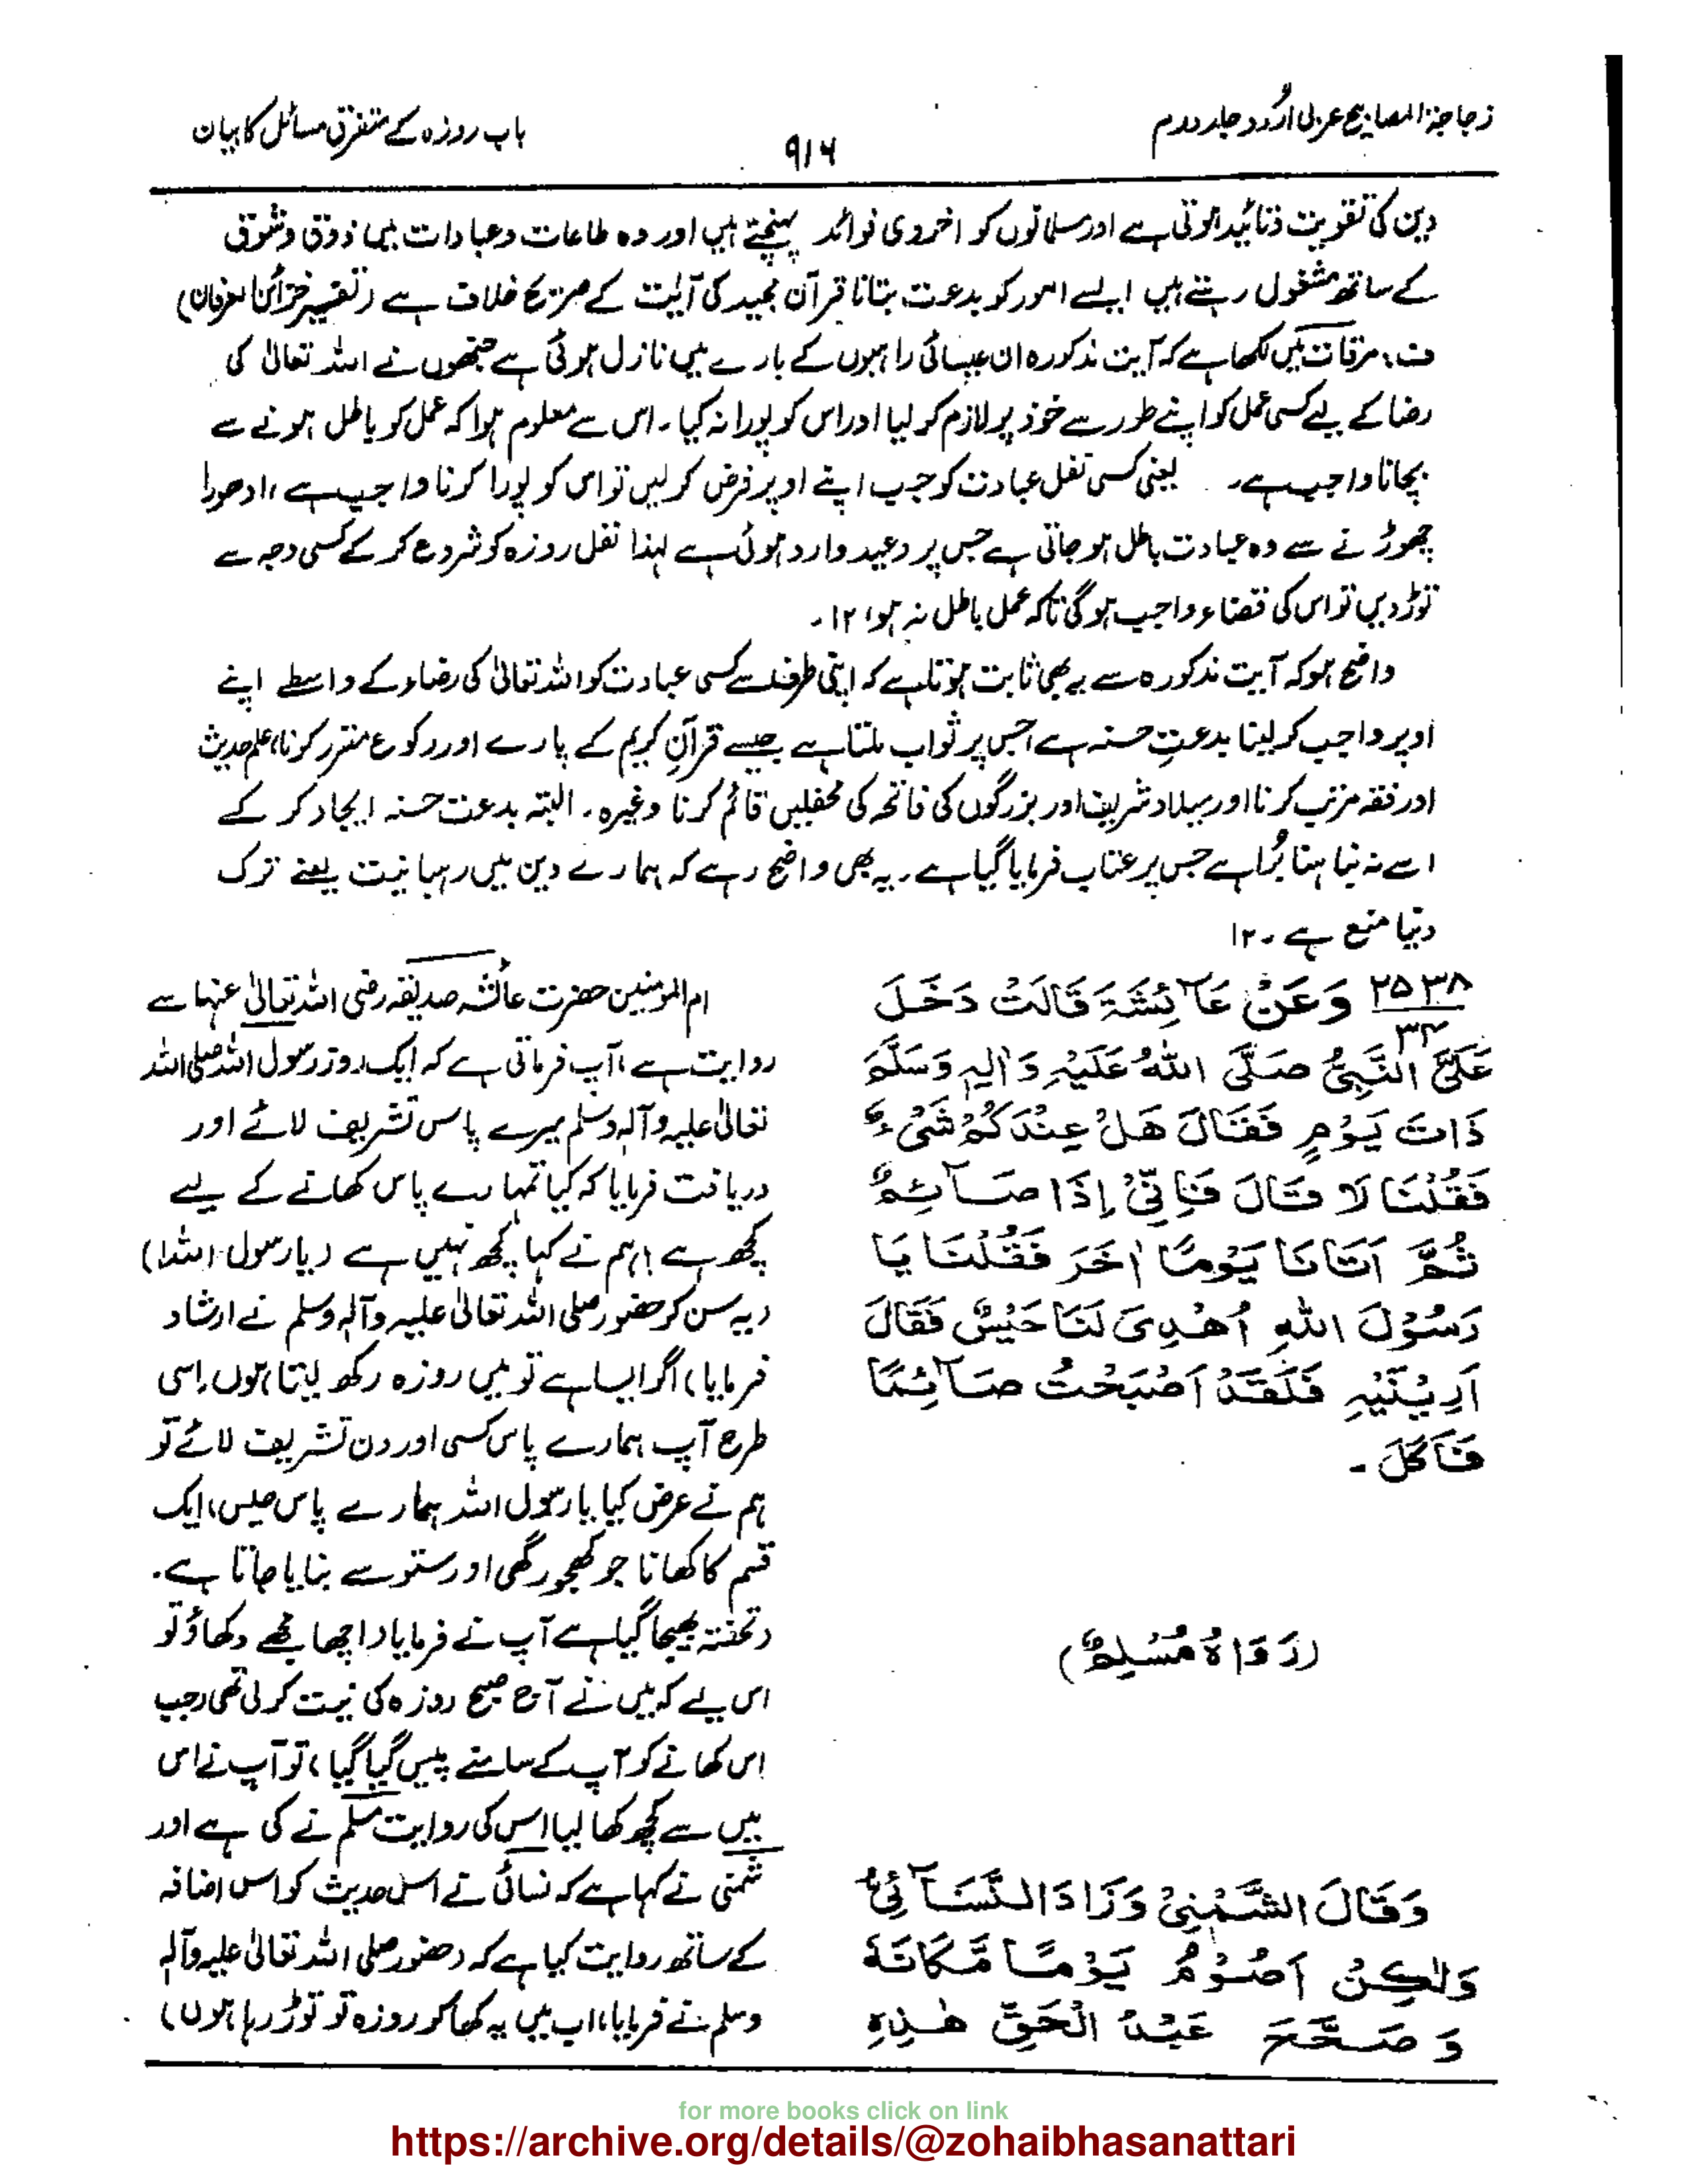 زجاجۃ المصابیح عربی اُردو جلد دوم
۹۱۶
باب روزہ کے متفرق مسائل کا بیان
دین کی تقویت و تائید ہوتی ہے اور مسلمانوں کو اخروی فوائد پہنچتے ہیں اور وہ طاعات و عبادات میں ذوق و شوق
کے ساتھ مشغول رہتے ہیں ایسے امور کو بدعت بتانا قرآن مجید کی آیت کے صریح خلاف ہے (تفسیر خزائن العرفان)
ف: مرقات میں لکھا ہے کہ آیت مذکورہ ان عیسائی راہبوں کے بارے میں نازل ہوئی ہے جنھوں نے اللہ تعالیٰ کی
رضا کے لیے کسی عمل کو اپنے طور سے خود پر لازم کر لیا اور اس کو پورا نہ کیا۔ اس سے معلوم ہوا کہ عمل کو باطل ہونے سے
بچانا واجب ہے۔ یعنی کسی نفل عبادت کو جب اپنے اوپر فرض کر لیں تو اس کو پورا کرنا واجب ہے، ادھورا
چھوڑنے سے وہ عبادت باطل ہو جاتی ہے جس پر وعید وارد ہوئی ہے لہٰذا نفل روزہ کو شروع کر کے کسی وجہ سے
توڑ دیں تو اس کی قضاء واجب ہو گی تاکہ عمل باطل نہ ہو، ۱۲۔
واضح ہو کہ آیت مذکورہ سے یہ بھی ثابت ہوتا ہے کہ اپنی طرف سے کسی عبادت کو اللہ تعالیٰ کی رضاء کے واسطے اپنے
اوپر واجب کر لینا بدعتِ حسنہ ہے جس پر ثواب ملتا ہے جیسے قرآنِ کریم کے پارے اور رکوع مقرر کرنا، علم حدیث
اور فقہ مرتب کرنا اور میلاد شریف اور بزرگوں کی فاتحہ کی محفلیں قائم کرنا وغیرہ۔ البتہ بدعت حسنہ ایجاد کر کے
اسے نہ نباہنا بُرا ہے جس پر عتاب فرمایا گیا ہے۔ یہ بھی واضح رہے کہ ہمارے دین میں رہبانیت یعنے ترک
دنیا منع ہے۔ ۱۲
۲۵۳۸
۳۴
وَعَنْ عَآئِشَةَ قَالَتْ دَخَلَ
عَلَيَّ النَّبِيُّ صَلَّى اللهُ عَلَيْهِ وَاٰلِهٖ وَسَلَّمَ
ذَاتَ يَوْمٍ فَقَالَ هَلْ عِنْدَكُمْ شَيْءٌ
فَقُلْنَا لَا قَالَ فَاِنِّيْ اِذًا صَآئِمٌ
ثُمَّ اَتَانَا يَوْمًا اٰخَرَ فَقُلْنَا يَا
رَسُوْلَ اللهِ اُهْدِيَ لَنَا حَيْسٌ فَقَالَ
اَرِيْنَيْهِ فَلَقَدْ اَصْبَحْتُ صَآئِمًا
فَاَكَلَ۔
(رَوَاهُ مُسْلِمٌ)
وَقَالَ الشَّمْنِيْ وَزَادَ النَّسَآئِيُّ
وَلٰكِنْ اَصُوْمُ يَوْمًا مَّكَانَهٗ
وَصَحَّحَ عَبْدُ الْحَقِّ هٰذِهِ
ام المؤمنین حضرت عائشہ صدیقہ رضی اللہ تعالیٰ عنہا سے
روایت ہے، آپ فرماتی ہے کہ ایک روز رسول اللہ صلی اللہ
تعالیٰ علیہ وآلہ وسلم میرے پاس تشریف لائے اور
دریافت فرمایا کہ کیا تمہارے پاس کھانے کے لیے
کچھ ہے! ہم نے کہا کچھ نہیں ہے (یا رسول اللہ!)
(یہ سن کر حضور صلی اللہ تعالیٰ علیہ وآلہ وسلم نے ارشاد
فرمایا) اگر ایسا ہے تو میں روزہ رکھ لیتا ہوں، اسی
طرح آپ ہمارے پاس کسی اور دن تشریف لائے تو
ہم نے عرض کیا یا رسول اللہ ہمارے پاس حیس، ایک
قسم کا کھانا جو کھجور گھی اور ستو سے بنایا جاتا ہے۔
(تحفتہ بھیجا گیا ہے آپ نے فرمایا (اچھا مجھے دکھاؤ تو
اس لیے کہ میں نے آج صبح روزہ کی نیت کر لی تھی (جب
اس کھانے کو آپ کے سامنے پیس گیا گیا، تو آپ نے اس
میں سے کچھ کھا لیا اس کی روایت مسلم نے کی ہے اور
شمنی نے کہا ہے کہ نسائی نے اس حدیث کو اس اضافہ
کے ساتھ روایت کیا ہے کہ (حضور صلی اللہ تعالیٰ علیہ وآلہ
وسلم نے فرمایا، اب میں یہ کھا کر روزہ تو توڑ رہا ہوں)
for more books click on link
https://archive.org/details/@zohaibhasanattari